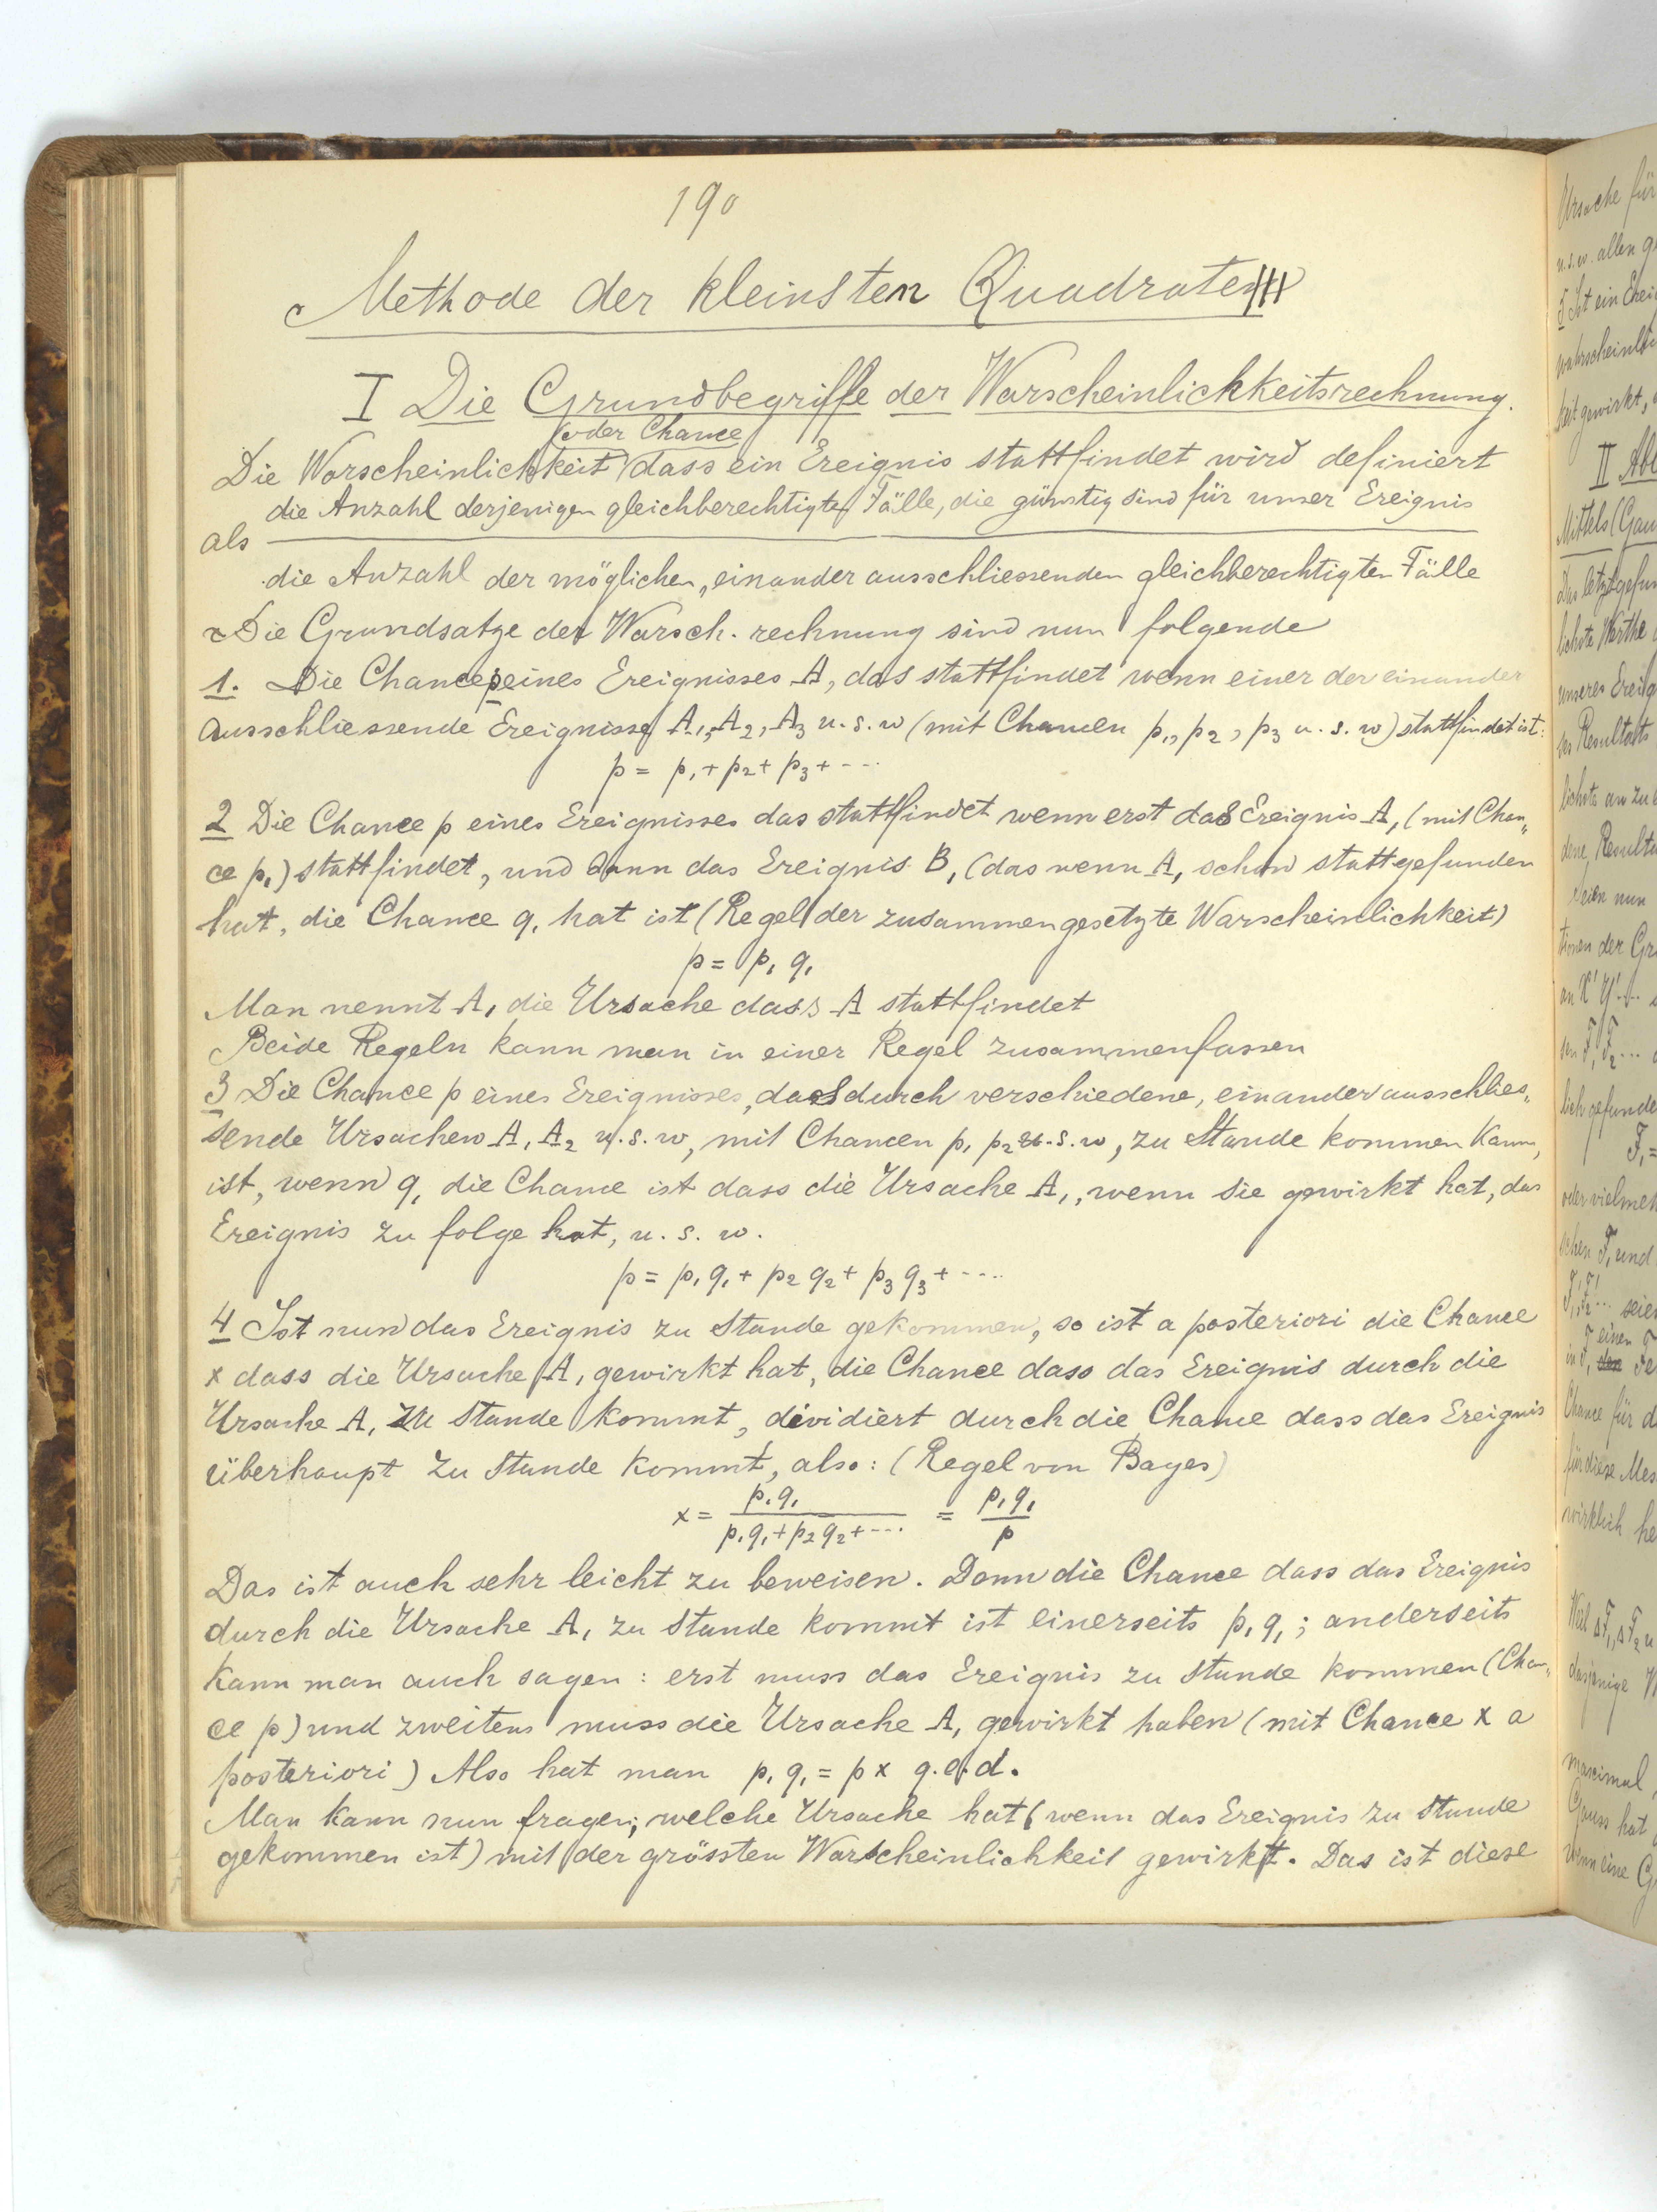 190
Methode der kleinsten Quadrate
I Die Grundbegriffe der Warscheinlichkeitsrechnung.
(oder Chance)
Die Warscheinlichkeit dass ein Ereignis stattfindet wird definiert
die Anzahl derjenigen gleichberechtigte Fälle, die günstig sind für unser Ereignis
als
die Anzahl der möglichen, einander ausschliessenden gleichberechtigten Fälle
Die Grundsatze der Warsch. rechnung sind nun folgende
1. Die Chance p eines Ereignisses A, das stattfindet wenn einer der einander
ausschliessende Ereignisse A₁, A₂, A₃ u. s. w (mit Chancen p₁, p₂, p₃ u. s. w) stattfindet ist:
p = p₁ + p₂ + p₃ + ----
2 Die Chance p eines Ereignisses das stattfindet wenn erst das Ereignis A₁ (mit Chan„
ce p₁) stattfindet, und dann das Ereignis B₁ (das wenn A₁ schon stattgefunden
hat, die Chance q₁ hat ist (Regel der zusammengesetzte Warscheinlichkeit)
p = p₁ q₁
Man nennt A₁ die Ursache dass A stattfindet
Beide Regeln kann man in einer Regel zusammenfassen
3 Die Chance p eines Ereignisses, das durch verschiedene, einander ausschlies„
sende Ursachen A₁ A₂ u. s. w, mit Chancen p₁ p₂ u. s. w, zu Stande kommen kann,
ist, wenn q₁ die Chance ist dass die Ursache A₁, wenn sie gewirkt hat, das
Ereignis zu folge hat, u. s. w.
p = p₁ q₁ + p₂ q₂ + p₃ q₃ + ----
4 Ist nun das Ereignis zu Stande gekommen, so ist a posteriori die Chance
x dass die Ursache A₁ gewirkt hat, die Chance dass das Ereignis durch die
Ursache A₁ zu Stande kommt, dividiert durch die Chance dass das Ereignis
überhaupt zu Stande kommt, also: (Regel von Bayes)
x = p₁ q₁ / p₁ q₁ + p₂ q₂ + ---- = p₁ q₁ / p
Das ist auch sehr leicht zu beweisen. Denn die Chance dass das Ereignis
durch die Ursache A₁ zu Stande kommt ist einerseits p₁ q₁; anderseits
kann man auch sagen: erst muss das Ereignis zu Stande kommen (Chan„
ce p) und zweitens muss die Ursache A₁ gewirkt haben (mit Chance x a
posteriori) Also hat man p₁ q₁ = p x q.e.d.
Man kann nun fragen; welche Ursache hat (wenn das Ereignis zu Stande
gekommen ist) mit der grössten Warscheinlichkeit gewirkt. Das ist diese
Ursache für
u.s.w. allen
5 Ist ein
keit gewirkt,
II
Mittels
unseres
des Resultats
lichste an zu
nun
tionen der
an
F₁ F₂ ...
F₁ =
oder vielmehr
F₁ und
seien
einen
Chance für
für diese
wirklich
Weil
dasjenige
maximal,
Gauss hat
wenn eine